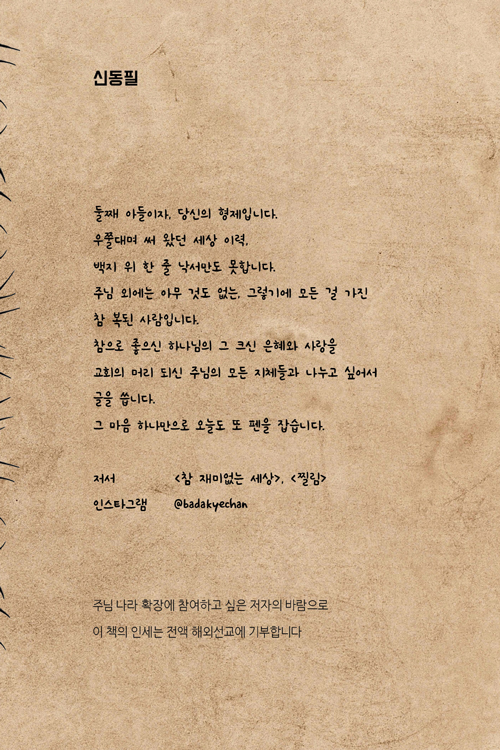 신동필
둘째 아들이자, 당신의 형제입니다.
우쭐대며 써 왔던 세상 이력,
백지 위 한 줄 낙서만도 못합니다.
주님 외에는 아무 것도 없는, 그렇기에 모든 걸 가진
참 복된 사람입니다.
참으로 좋으신 하나님의 그 크신 은혜와 사랑을
교회의 머리 되신 주님의 모든 지체들과 나누고 싶어서
글을 씁니다.
그 마음 하나만으로 오늘도 또 펜을 잡습니다.
저서 <참 재미없는 세상>, <찔림>
인스타그램 @badakyechan
주님 나라 확장에 참여하고 싶은 저자의 바람으로
이 책의 인세는 전액 해외선교에 기부합니다